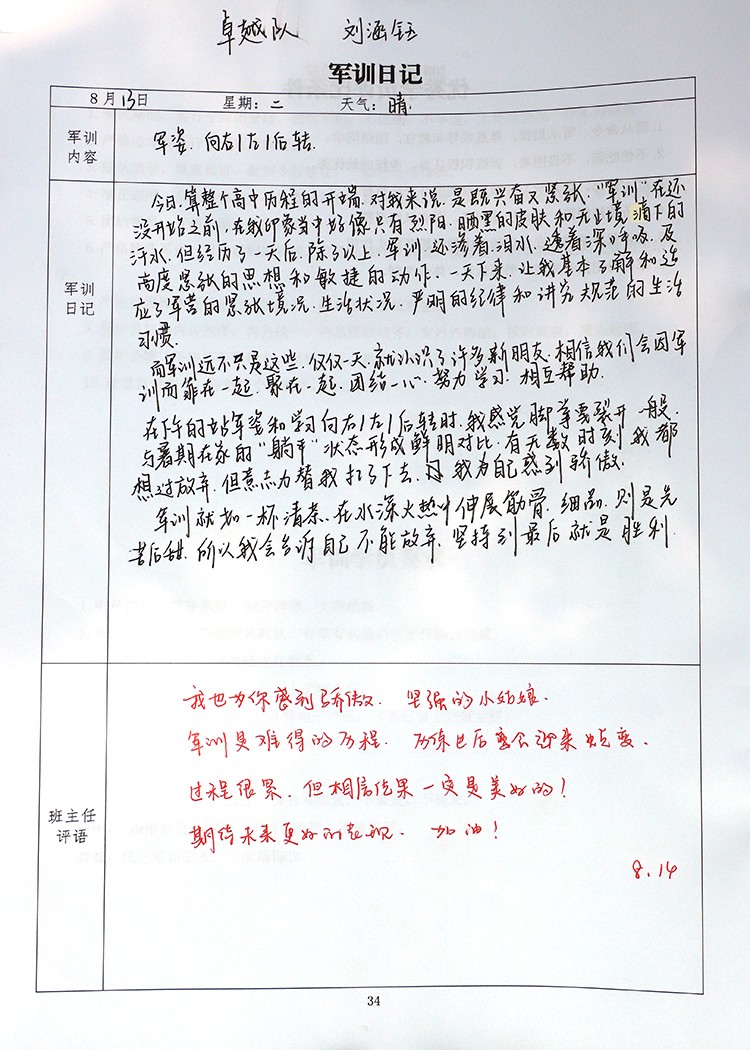 卓越队 刘涵钰
军训日记
8月13日 星期:二 天气:晴.
军训
内容
军姿. 向右/左/后转.
军训
日记
今日.算整个高中历程的开端.对我来说.是既兴奋又紧张.“军训”在还
没开始之前.在我印象当中好像只有烈阳.晒黑的皮肤和无止境滴下的
汗水.但经历了一天后.除了以上.军训还渗着泪水.透着深呼吸.及
高度紧张的思想和敏捷的动作.一天下来.让我基本了解和适
应了军营的紧张境况.生活状况.严明的纪律和讲究规范的生活
习惯.
而军训远不只是这些.仅仅一天.就认识了许多新朋友.相信我们会因军
训而靠在一起.聚在一起.团结一心.努力学习.相互帮助.
在下午的站军姿和学习向右/左/后转时.我感觉脚掌要裂开一般.
与暑期在家的“躺平”状态形成鲜明对比.有无数时刻我都
想过放弃.但意志力替我打了下去.我为自己感到骄傲.
军训就如一杯清茶.在水深火热中伸展筋骨.细品.则是先
苦后甜.所以我会告诉自己不能放弃.坚持到最后就是胜利.
班主任
评语
我也为你感到骄傲.坚强的小姑娘.
军训是难得的历程.历练过后蛮会迎来蜕变.
过程很累.但相信结果一定是美好的!
期待未来更好的表现.加油!
8.14
34